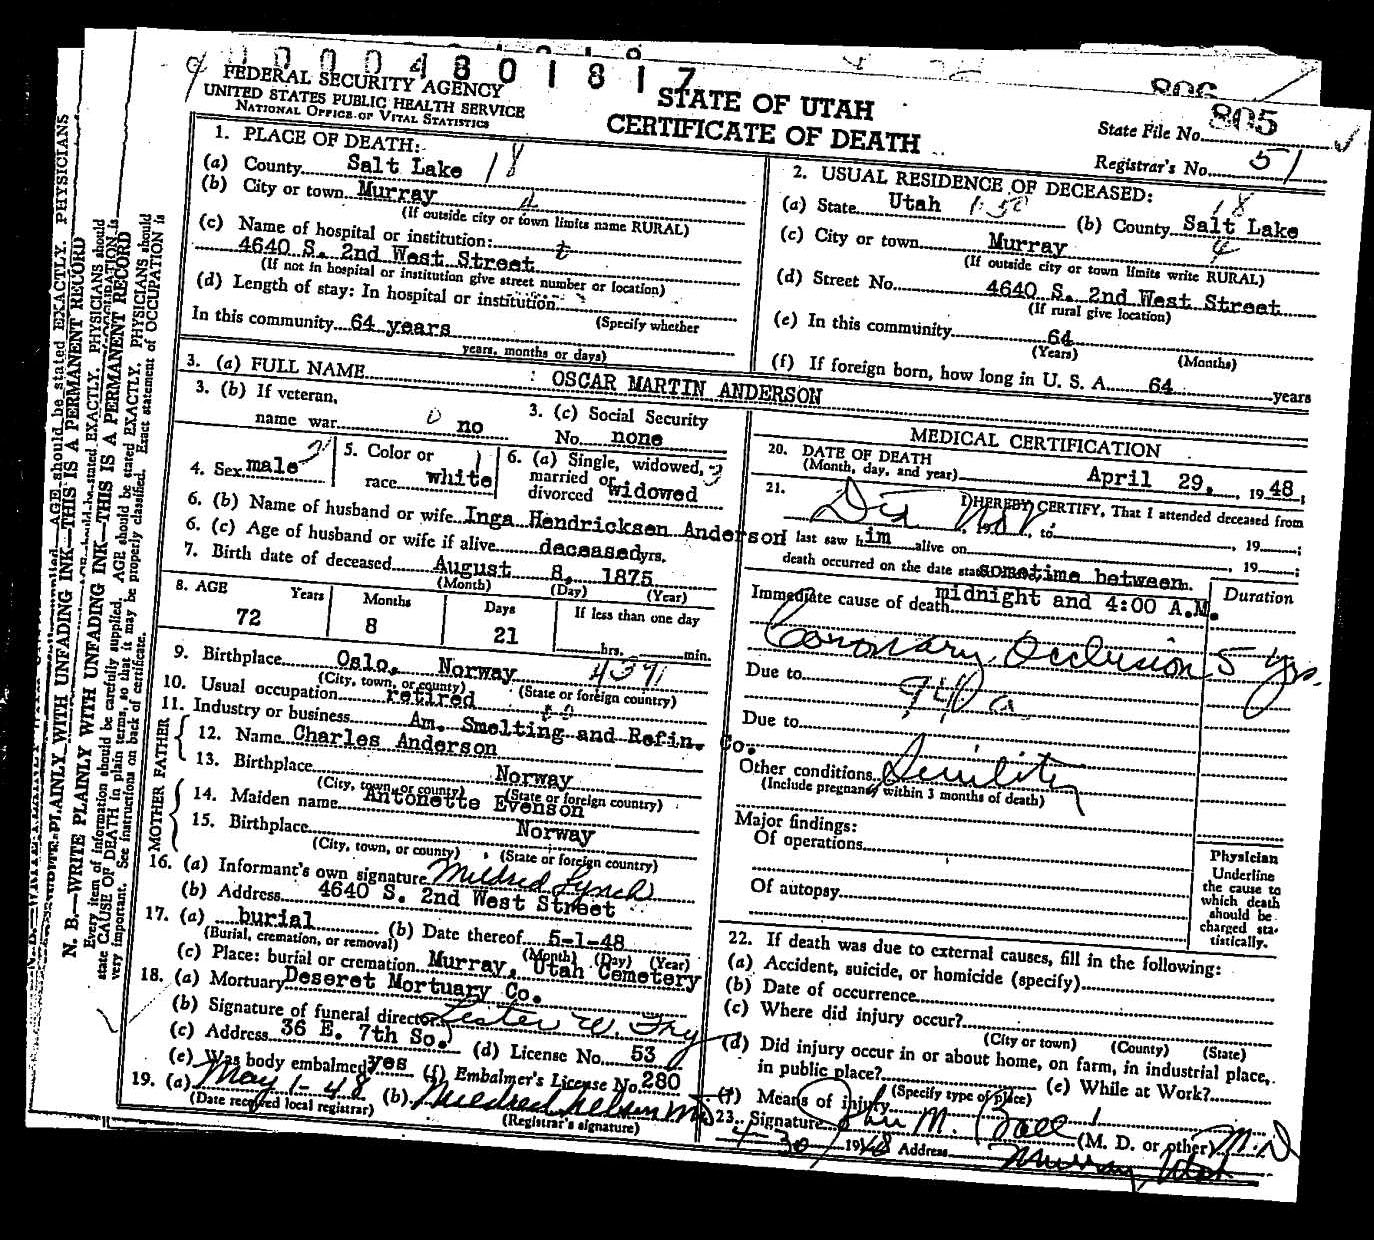 00004801817
FEDERAL SECURITY AGENCY
UNITED STATES PUBLIC HEALTH SERVICE
NATIONAL OFFICE OF VITAL STATISTICS
STATE OF UTAH
CERTIFICATE OF DEATH
806
State File No. 805
Registrar's No. 51
1. PLACE OF DEATH:
(a) County Salt Lake 18
(b) City or town Murray
(If outside city or town limits name RURAL)
(c) Name of hospital or institution:
4640 S. 2nd West Street
(If not in hospital or institution give street number or location)
(d) Length of stay: In hospital or institution
(Specify whether
In this community 64 years
years, months or days)
2. USUAL RESIDENCE OF DECEASED:
(a) State Utah (b) County Salt Lake 18
(c) City or town Murray
(If outside city or town limits write RURAL)
(d) Street No. 4640 S. 2nd West Street
(If rural give location)
(e) In this community 64
(Years) (Months)
(f) If foreign born, how long in U. S. A. 64 years
3. (a) FULL NAME OSCAR MARTIN ANDERSON
3. (b) If veteran,
name war no
3. (c) Social Security
No. none
4. Sex male
5. Color or
race white
6. (a) Single, widowed,
married or
divorced widowed
6. (b) Name of husband or wife Inga Hendricksen Anderson
6. (c) Age of husband or wife if alive deceased yrs.
7. Birth date of deceased August 8, 1875
(Month) (Day) (Year)
8. AGE Years Months Days If less than one day
72 8 21
hrs. min.
9. Birthplace Oslo, Norway 4371
(City, town, or county) (State or foreign country)
10. Usual occupation retired
11. Industry or business Am. Smelting and Refin. Co.
FATHER
12. Name Charles Anderson
13. Birthplace Norway
(City, town, or county) (State or foreign country)
MOTHER
14. Maiden name Antonette Evenson
15. Birthplace Norway
(City, town, or county) (State or foreign country)
16. (a) Informant's own signature Mildred Lynch
(b) Address 4640 S. 2nd West Street
17. (a) burial (b) Date thereof 5-1-48
(Burial, cremation, or removal) (Month) (Day) (Year)
(c) Place: burial or cremation Murray, Utah Cemetery
18. (a) Mortuary Deseret Mortuary Co.
(b) Signature of funeral director Lester W. Fry
(c) Address 36 E. 7th So. (d) License No. 53
(e) Was body embalmed yes (f) Embalmer's License No. 280
19. (a) May 1-48 (b) Mildred Nelson MD
(Date received local registrar) (Registrar's signature)
MEDICAL CERTIFICATION
20. DATE OF DEATH
(Month, day, and year) April 29, 1948;
21. I HEREBY CERTIFY, That I attended deceased from
Did Not, to , 19 ;
last saw him alive on , 19 ;
death occurred on the date stated sometime between
midnight and 4:00 A.M.
Duration
Immediate cause of death
Coronary Occlusion 5 yrs.
Due to
94 a
Due to
Other conditions Senility
(Include pregnancy within 3 months of death)
Major findings:
Of operations
Of autopsy
Physician
Underline
the cause to
which death
should be
charged sta-
tistically.
22. If death was due to external causes, fill in the following:
(a) Accident, suicide, or homicide (specify)
(b) Date of occurrence
(c) Where did injury occur?
(City or town) (County) (State)
(d) Did injury occur in or about home, on farm, in industrial place,
in public place? (e) While at Work?
(Specify type of place)
(f) Means of injury
23. Signature John M. Ball (M. D. or other) M.D
4-30 1948 Address Murray, Utah
N. B.—WRITE PLAINLY WITH UNFADING INK—THIS IS A PERMANENT RECORD
Every item of information should be carefully supplied. AGE should be stated EXACTLY. PHYSICIANS should
state CAUSE OF DEATH in plain terms, so that it may be properly classified. Exact statement of OCCUPATION is
very important. See instructions on back of certificate.